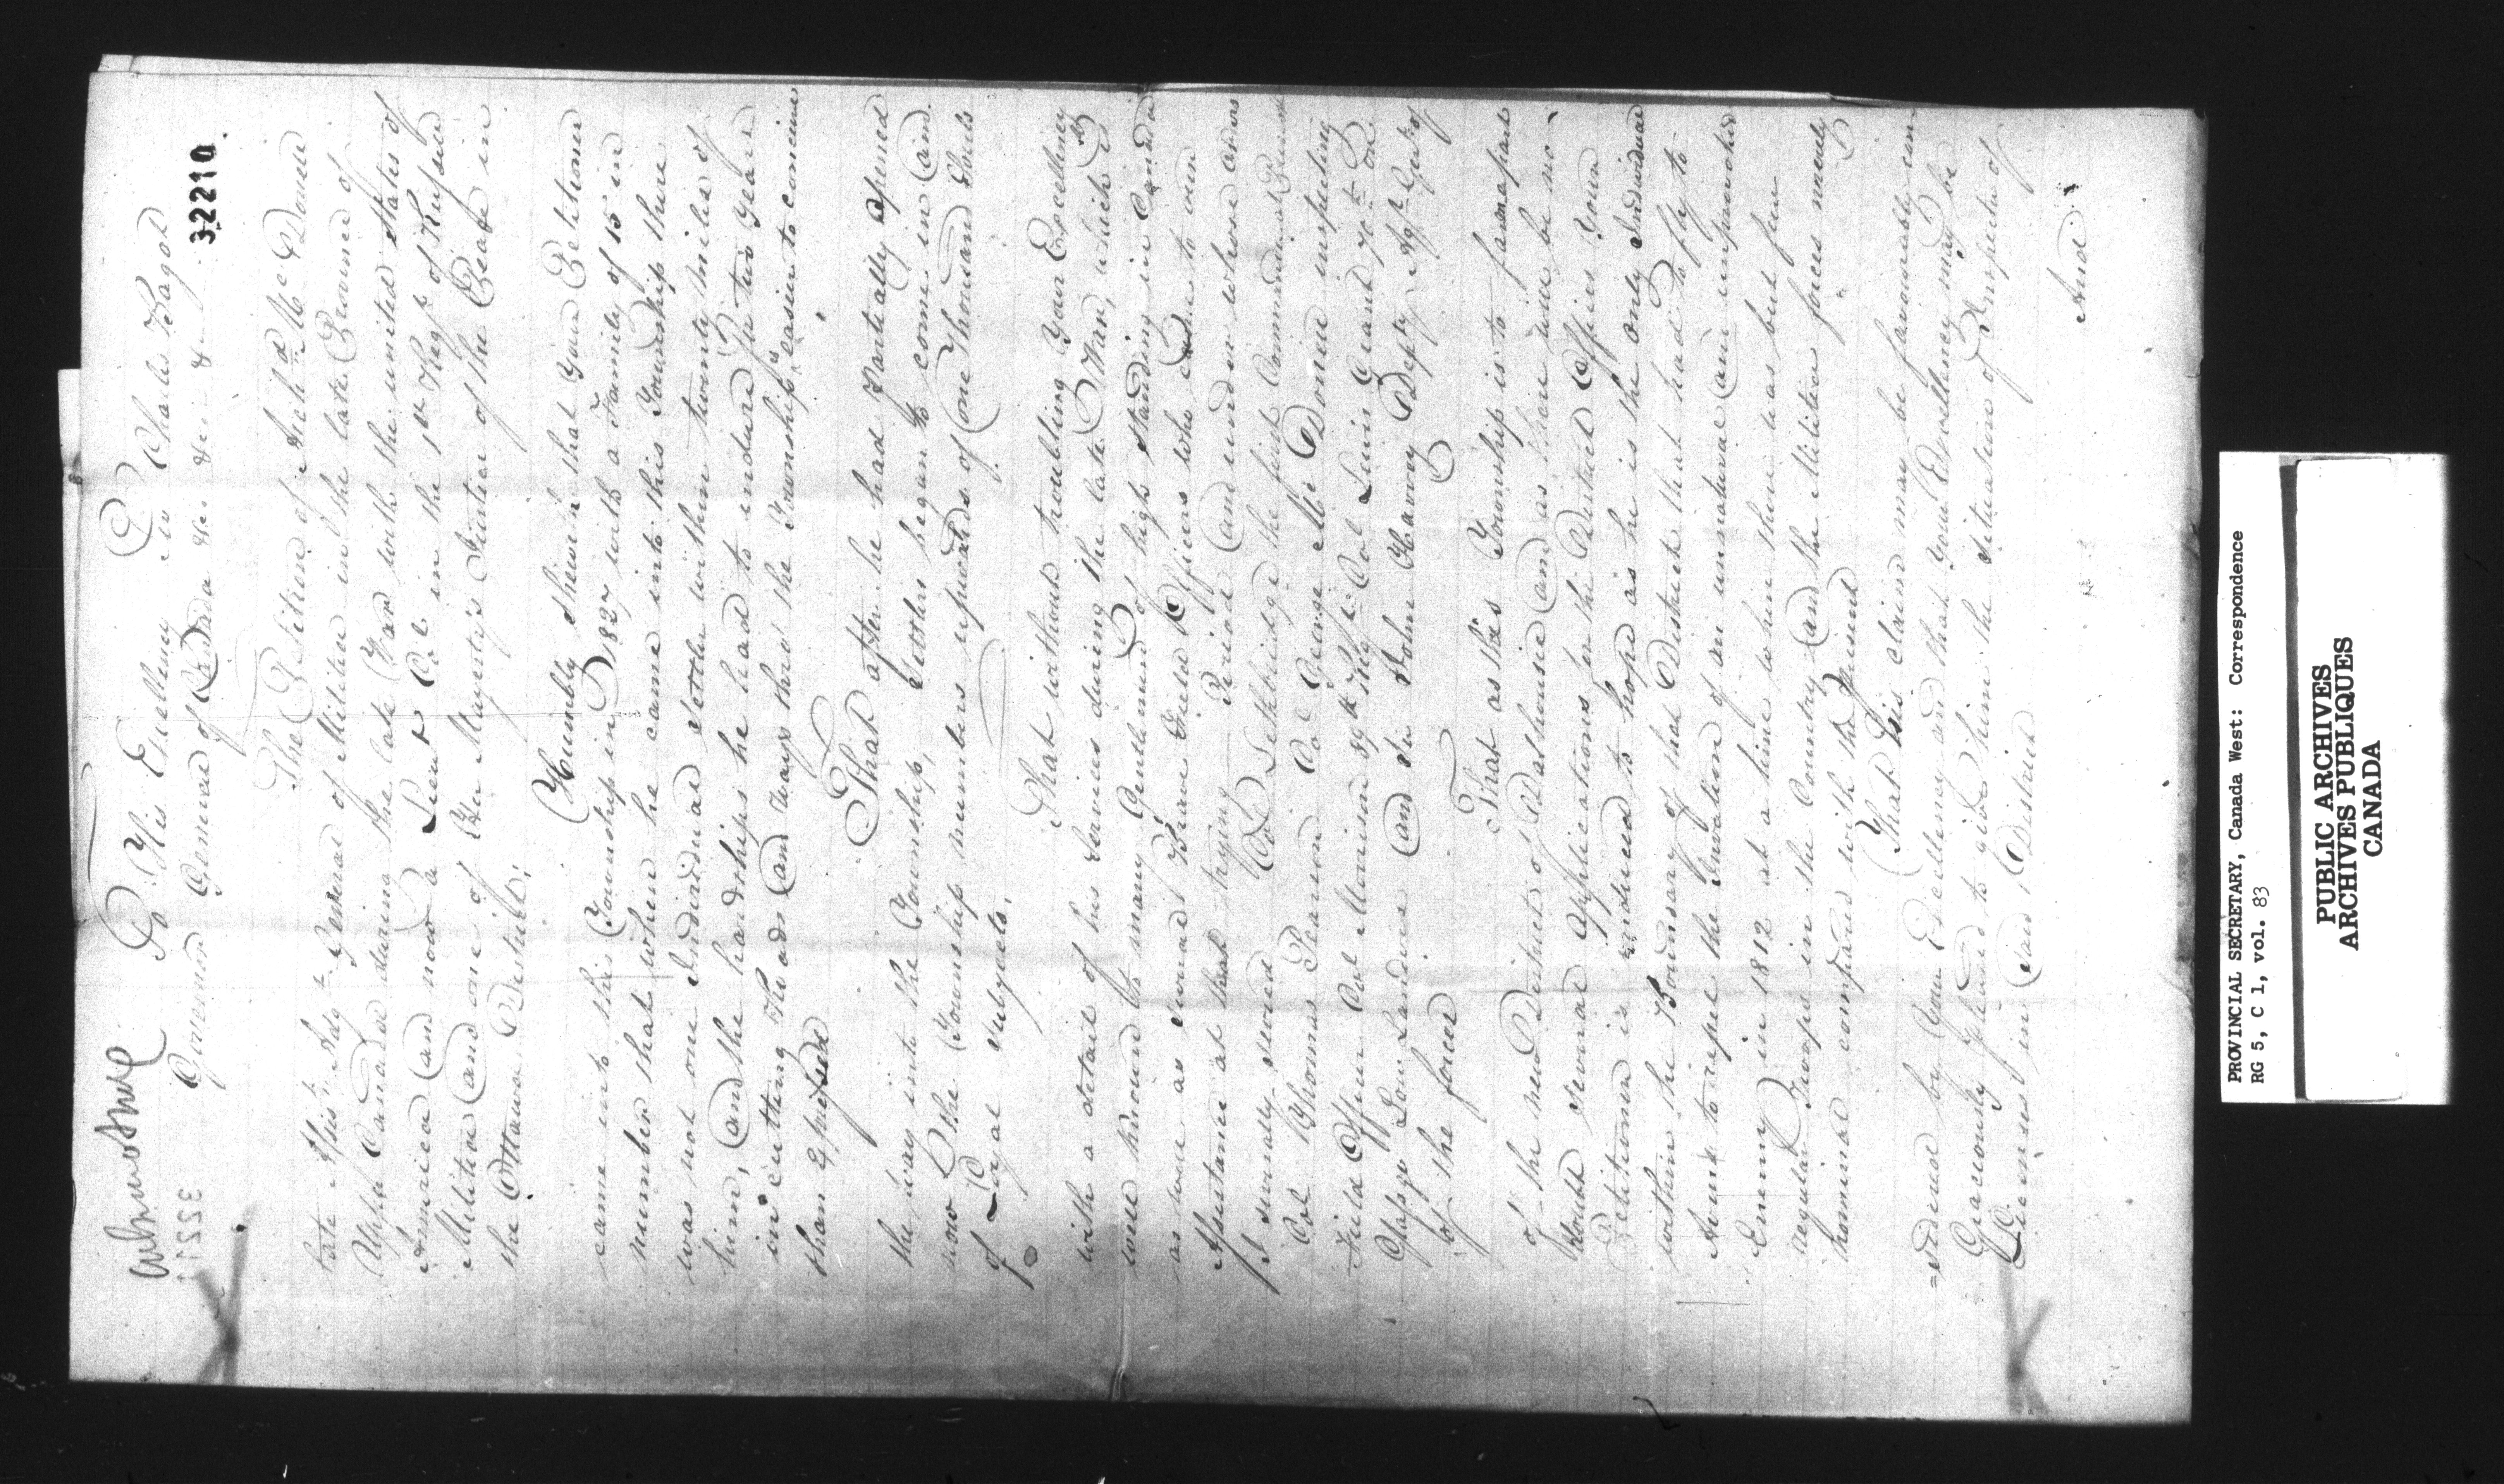 To His Excellency Sir Charles Bagot
Governor General of Canada &c &c &c
32210
The Petition of Archd McDonell
late Assist Adjt General of Militia in the late Province of
Upper Canada during the late War with the united States of
America and now a Lieut Col in the 1st Regt of Russell
Militia and one of Her Majesty's Justices of the Peace in
the Ottawa District,
Humbly Sheweth that Your Petitioner
came into this Township in 1827 with a Family of 15 in
number that when he came into this Township there
was not one Individual settler within twenty miles of
him, and the hardships he had to endure for two years
in cutting Roads and ways thro' the Township is easier to conceive
than Expressed
That after he had Partially opened
the way into the Township, Settlers began to come in and
now the Township numbers upwards of One Thousand Souls
of Loyal subjects,
That without troubling Your Excellency
with a detail of his Services during the late War, which is
well known to many Gentlemen of high standing in Canada
as well as several Brave Field Officers who came to our
Assistance at that trying Period and under whose orders
I severally served Col Lethbridge the first Commandant
Col Thomas Pearson Col George McDonell inspecting
Field Officer Col Morrison 89th Regt Col Lewis Grant 70th
and Sir John Harvey Depty Adjt Genl of
of the forces
That as this Township is to form a part
of the new District of Dalhousie and as there will be no
doubt several applications for the District Offices Your
Petitioner is induced to hope as he is the only Individual
within the Boundary of that District that had to fly to
Arms to repel the Invation of an unnatural and unprovoked
Enemy in 1812 at a time when there was but few
regular Troops in the Country and the Militia forces merely
nominal compared with the present
That his claim may be favourably con-
=sidered by Your Excellency and that Your Excellency may be
Graciously pleased to give him the situation of Inspector of
Licenses in said District
And
PROVINCIAL SECRETARY, Canada West: Correspondence
RG 5, C 1, vol. 83
PUBLIC ARCHIVES
ARCHIVES PUBLIQUES
CANADA